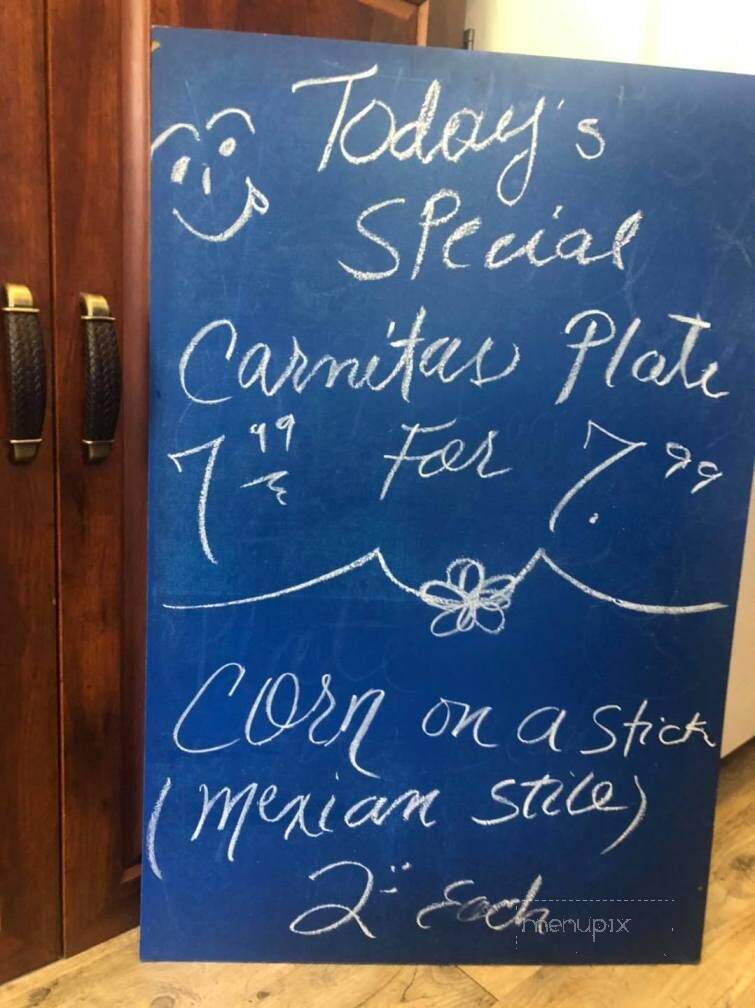 Today's
Special
Carnitas Plate
7 99 For 7.99
Corn on a stick
(mexian stile)
2 Each
menupix